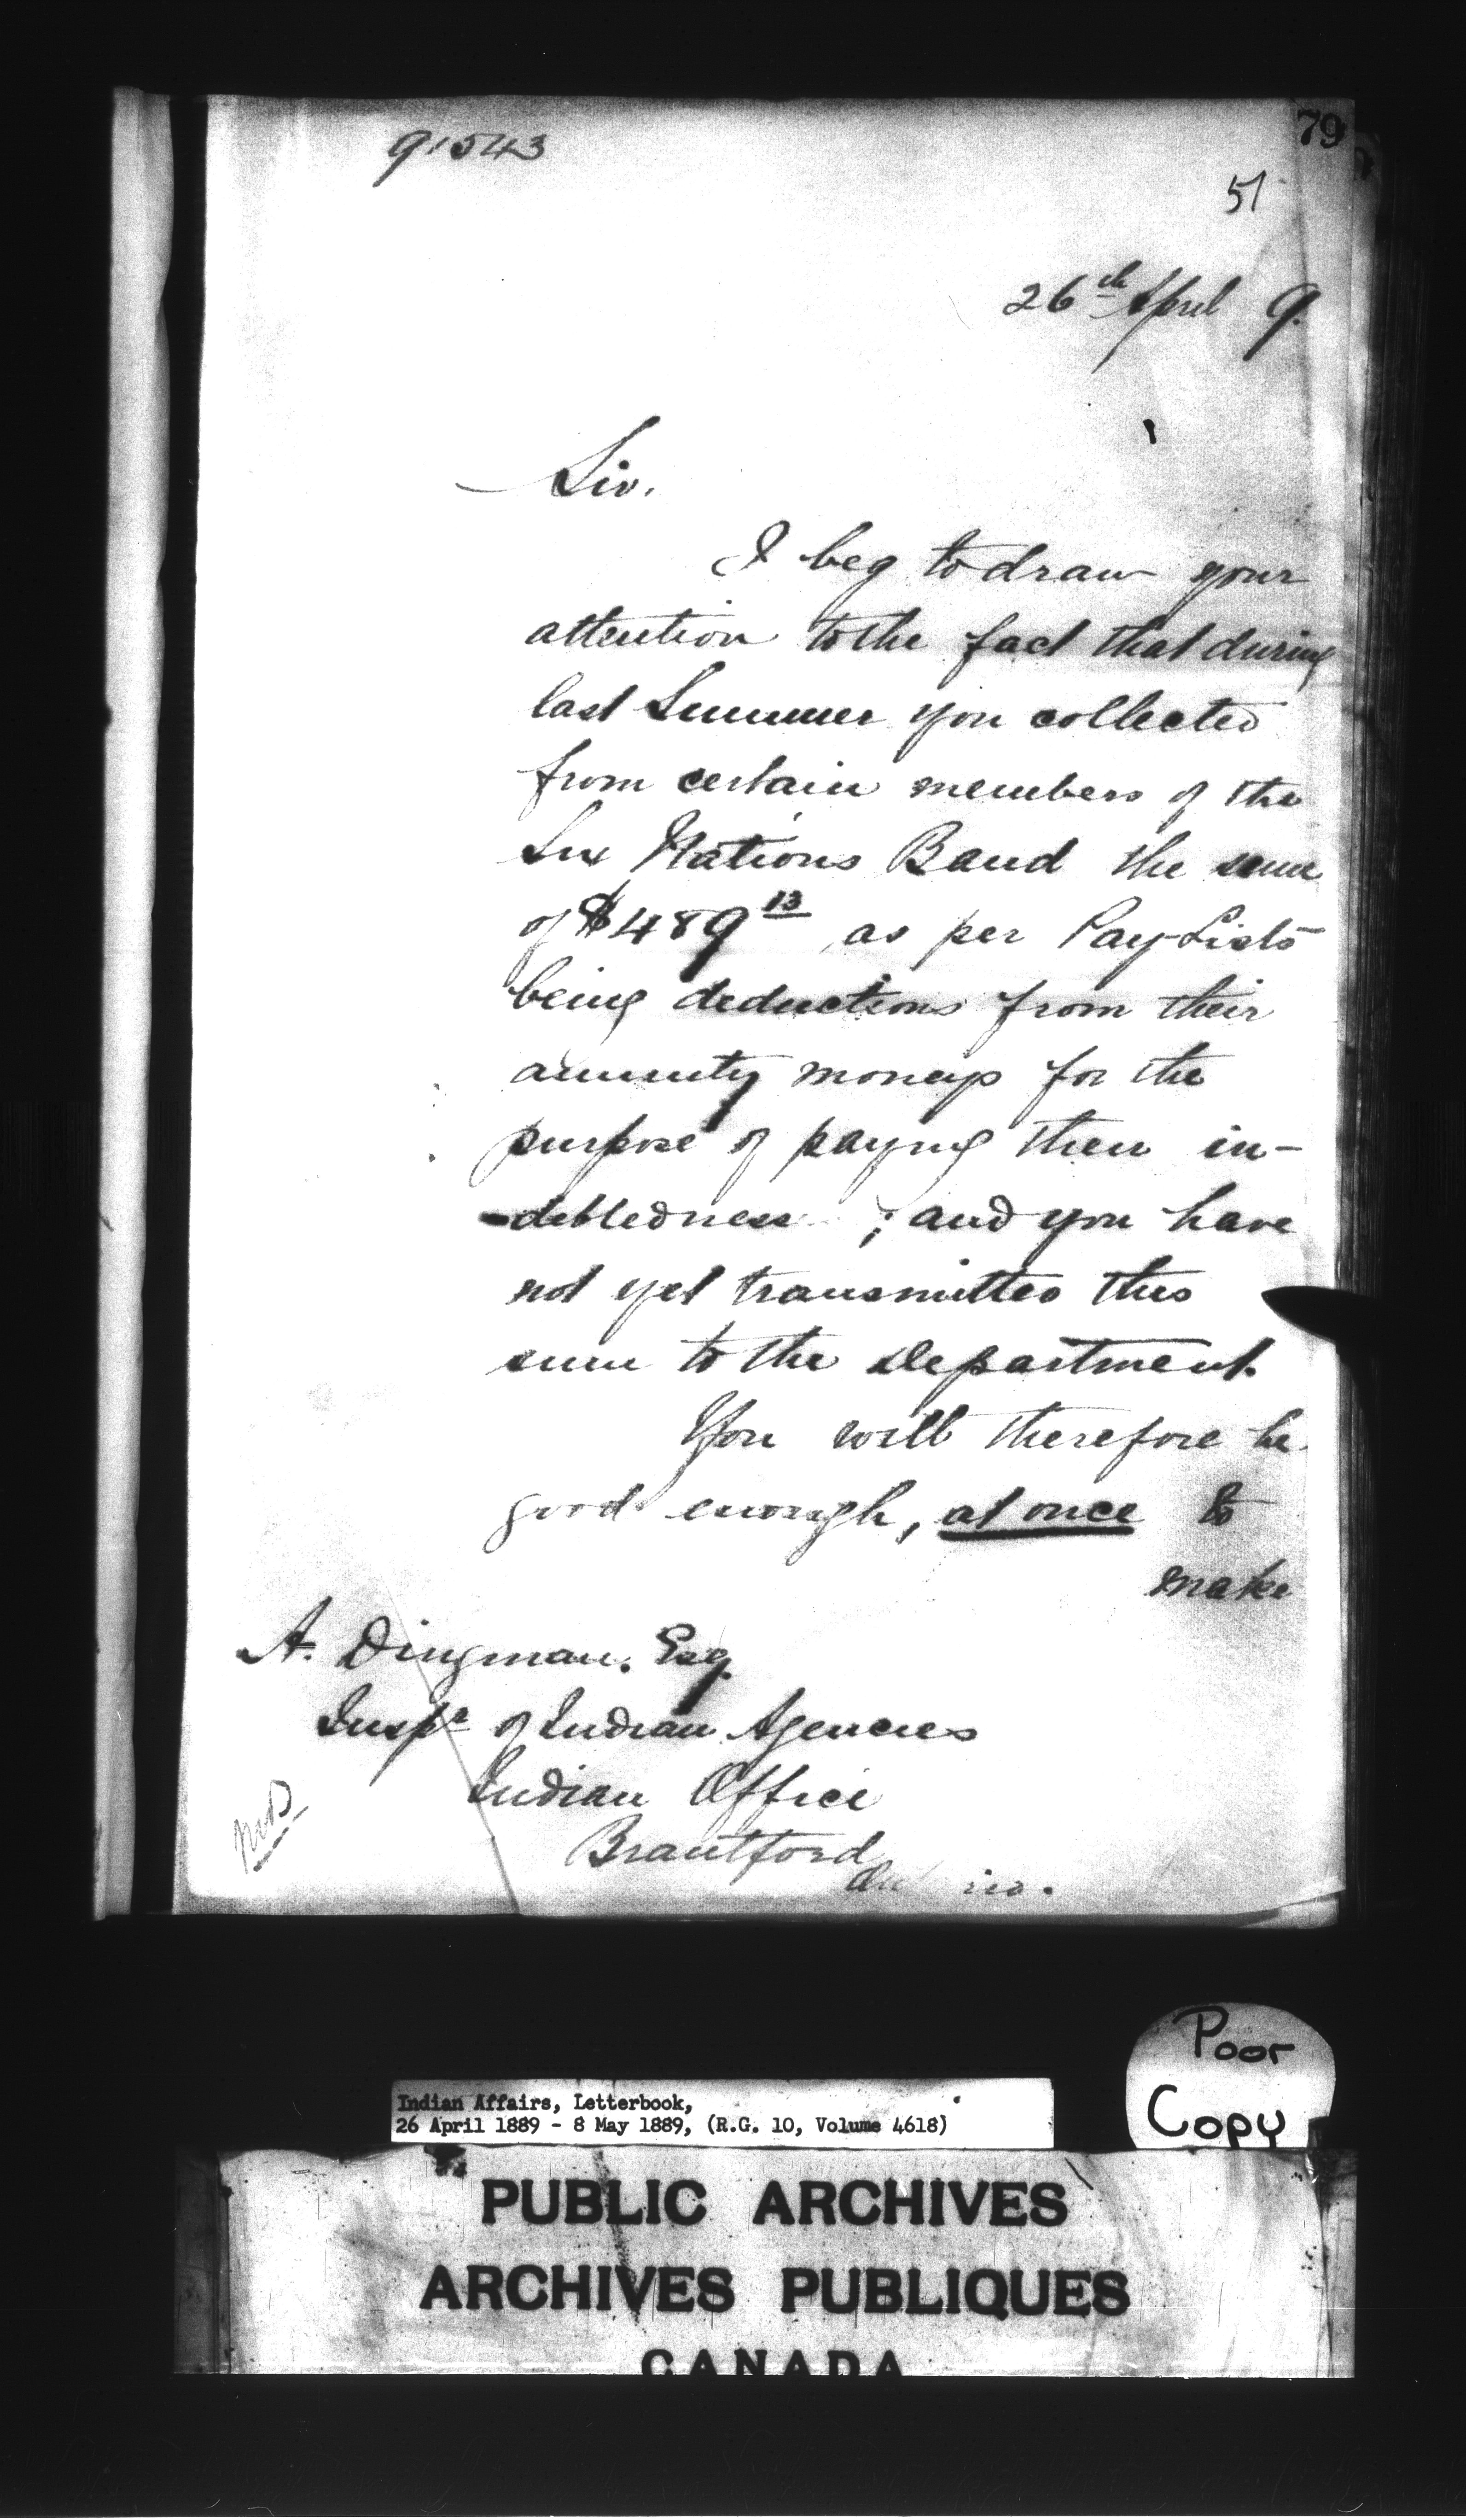 91543
79
51
26th April 9.
Sir.
I beg to draw your
attention to the fact that during
last Summer you collected
from certain members of the
Six Nations Band the sum
of $489 13 as per Pay-Lists
being deductions from their
annuity moneys for the
purpose of paying their in-
-debtedness ; and you have
not yet transmitted this
sum to the Department.
You will therefore be
good enough, at once to
make
A. Dingman. Esq.
Inspr of Indian Agencies
Indian Office
Brantford
Poor
Copy
Indian Affairs, Letterbook,
26 April 1889 - 8 May 1889, (R.G. 10, Volume 4618)
PUBLIC ARCHIVES
ARCHIVES PUBLIQUES
CANADA